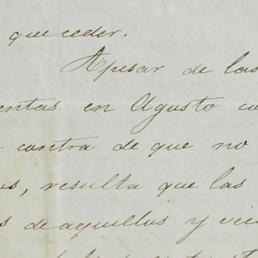 que ceder.
Apesar de las
entas en Agusto co
contra de que no
os, resulta que las
s de aquellos y vie